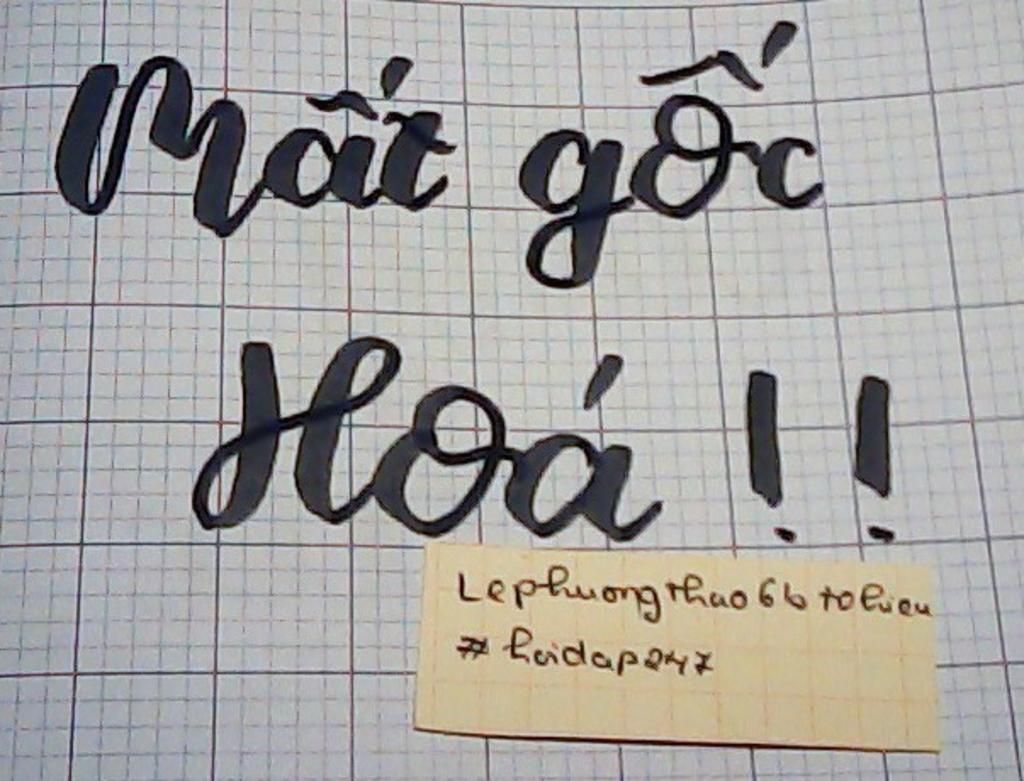 Mất gốc
Hoá !!
Lephuongthao6b tohieu
#hoidap247